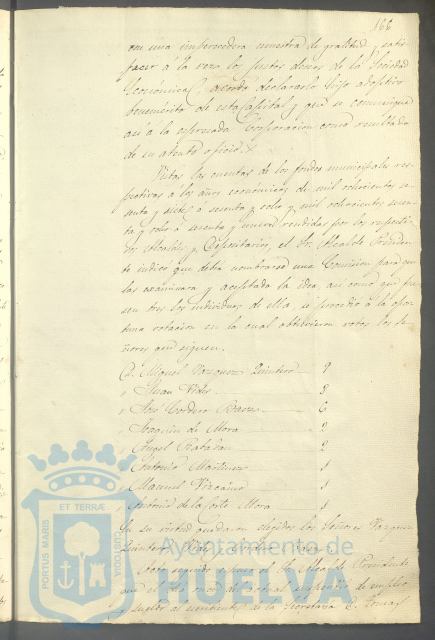 166
con una imperecedera muestra de gratitud y satis-
facer á la vez los justos deseos de la Sociedad
Económica, acordó declararle hijo adoptivo
benemérito de esta Capital y que se comunique
así á la espresada Corporacion como resultado
de su atento oficio.
Vistas las cuentas de los fondos municipales res-
pectivas á los años económicos de mil ochocientos se-
senta y siete á sesenta y ocho y mil ochocientos sesen-
ta y ocho á sesenta y nueve rendidas por los respecti-
vos Alcaldes y Depositarios, el Sr. Alcalde Presiden-
te indicó que debia nombrarse una Comision para que
las examinara y aceptada la idea, así como que fue-
sen tres los individuos de ella, se procedió á la opor-
tuna votacion en la cual obtuvieron votos los se-
ñores que siguen.
D. Miguel Vazquez Quintero 9
" Juan Vides 8
" José Cordero 6
" Joaquin de Mora 2
" Angel Rabadan 2
" Antonio Martinez 1
" Manuel Vizcaino 1
" Antonio de la Corte Mora 1
En su virtud quedaron elegidos los Señores Vazquez
Quintero, Vides y Cordero
Acto seguido espuso el Sr. Alcalde Presidente
que el dia
y sueldo al escribiente de la Secretaria D. Tomas
PORTUS MARIS
ET TERRÆ
CUSTODIA
Ayuntamiento de
HUELVA